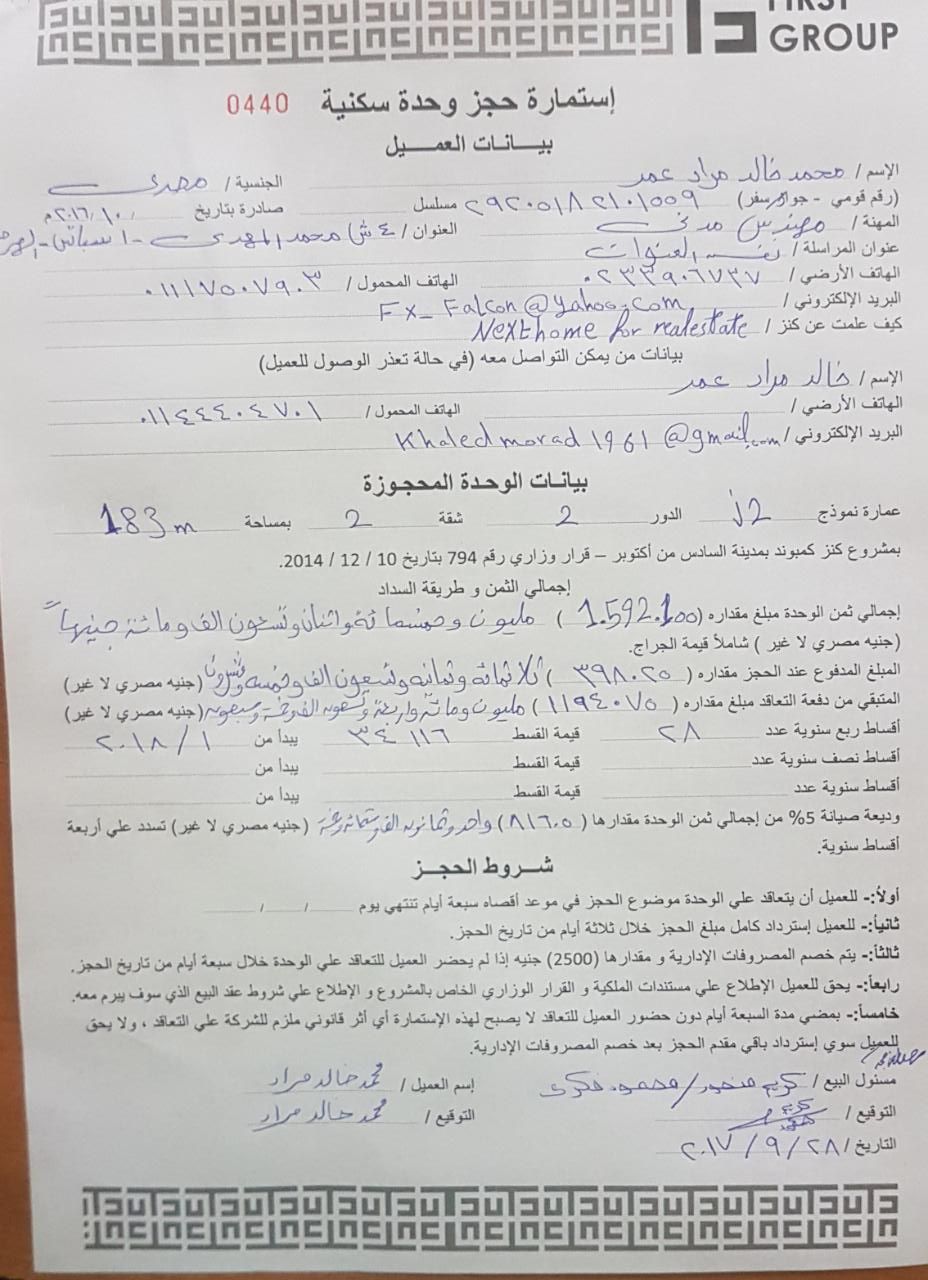 FIRST
GROUP
إستمارة حجز وحدة سكنية 0440
بيانات العميل
الإسم / محمد خالد مراد عمر الجنسية / مصرى
(رقم قومي - جواز سفر) ٢٩٢٠٥١٨٢١٠١٥٥٩ مسلسل صادرة بتاريخ ٢٠١٦/١٠/ م
المهنة / مهندس مدنى العنوان / ٤ ش محمد المهدى - البساتين -
عنوان المراسلة / نفس العنوان
الهاتف الأرضي / ٠٢٣٣٩٠٦٧٣٧ الهاتف المحمول / ٠١١١٧٥٠٧٩٠٣
البريد الإلكتروني / Fx_Falcon@yahoo.com
كيف علمت عن كنز / Nexthome for realestate
بيانات من يمكن التواصل معه (في حالة تعذر الوصول للعميل)
الإسم / خالد مراد عمر
الهاتف الأرضي / الهاتف المحمول / ٠١١٤٤٤٠٤٧٠١
البريد الإلكتروني / Khaledmorad1961@gmail.com
بيانات الوحدة المحجوزة
عمارة نموذج J2 الدور 2 شقة 2 بمساحة 183m
بمشروع كنز كمبوند بمدينة السادس من أكتوبر – قرار وزاري رقم 794 بتاريخ 10 / 12 / 2014.
إجمالي الثمن و طريقة السداد
إجمالي ثمن الوحدة مبلغ مقداره (1.592.100) مليون وخمسمائة واثنان وتسعون الف ومائة جنيهاً
(جنيه مصري لا غير ) شاملاً قيمة الجراج.
المبلغ المدفوع عند الحجز مقداره ( ٣٩٨٠٢٥ ) ثلاثمائة وثمانيه وتسعون الف وخمسه وعشرون (جنيه مصري لا غير)
المتبقي من دفعة التعاقد مبلغ مقداره (١١٩٤٠٧٥) مليون ومائه واربعة وتسعون الف وخمسة وسبعون (جنيه مصري لا غير)
أقساط ربع سنوية عدد ٢٨ قيمة القسط ٣٤١١٦ يبدأ من ٢٠١٨/١
أقساط نصف سنوية عدد قيمة القسط يبدأ من
أقساط سنوية عدد قيمة القسط يبدأ من
وديعة صيانة 5% من إجمالي ثمن الوحدة مقدارها (٨١٦٠٥) واحد وثمانون الف وستمائة وخمسة (جنيه مصري لا غير) تسدد علي أربعة
أقساط سنوية.
شروط الحجز
أولاً:- للعميل أن يتعاقد علي الوحدة موضوع الحجز في موعد أقصاه سبعة أيام تنتهي يوم / / /
ثانياً:- للعميل إسترداد كامل مبلغ الحجز خلال ثلاثة أيام من تاريخ الحجز.
ثالثاً:- يتم خصم المصروفات الإدارية و مقدارها (2500) جنيه إذا لم يحضر العميل للتعاقد علي الوحدة خلال سبعة أيام من تاريخ الحجز.
رابعاً:- يحق للعميل الإطلاع علي مستندات الملكية و القرار الوزاري الخاص بالمشروع و الإطلاع علي شروط عقد البيع الذي سوف يبرم معه.
خامساً:- بمضي مدة السبعة أيام دون حضور العميل للتعاقد لا يصبح لهذه الإستمارة أي أثر قانوني ملزم للشركة علي التعاقد ، ولا يحق
للعميل سوي إسترداد باقي مقدم الحجز بعد خصم المصروفات الإدارية.
مسئول البيع / كريم منصور / محمود فكرى إسم العميل / محمد خالد مراد
التوقيع / كريم التوقيع / محمد خالد مراد
التاريخ / ٢٨ / ٩ / ٢٠١٧